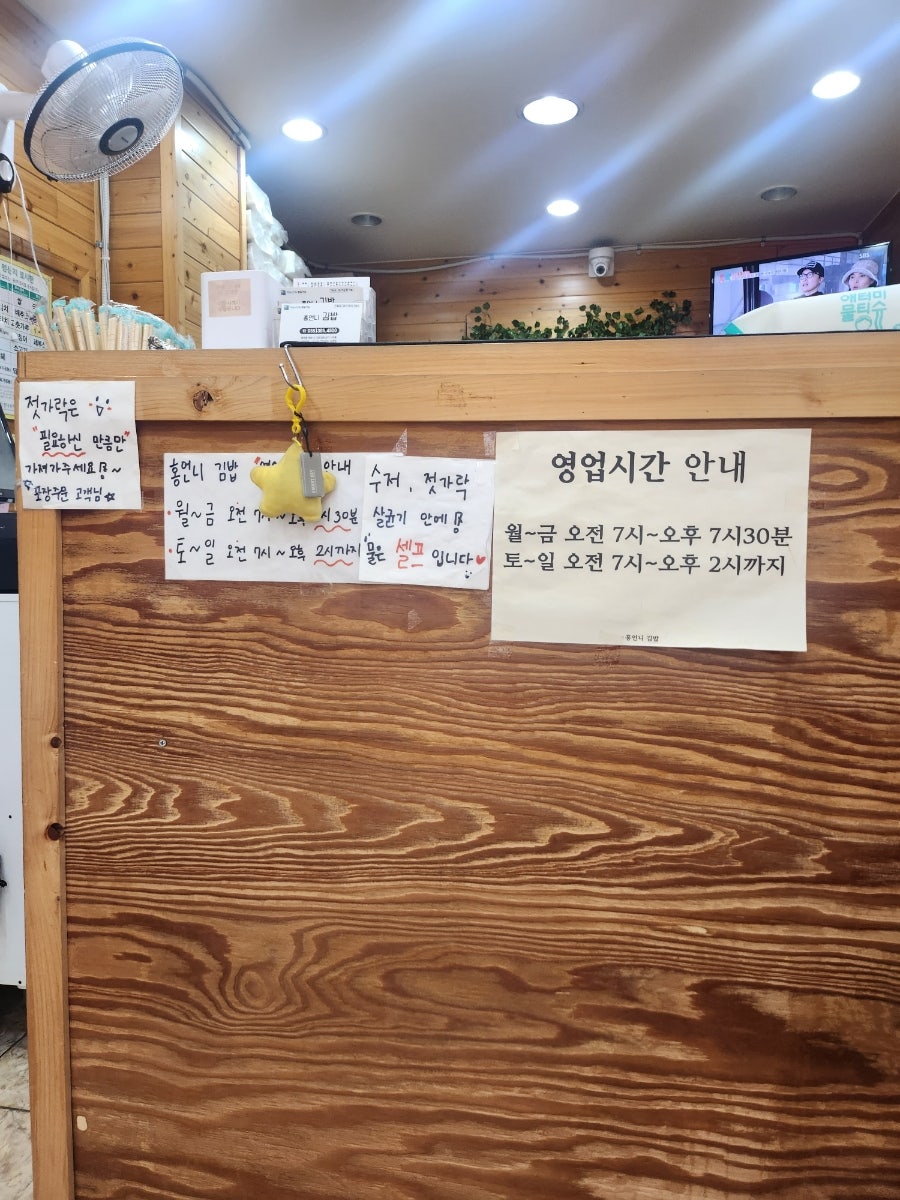 젓가락은
"필요하신 만큼만"
가져가주세요~
포장주문 고객님
홍언니 김밥 안내
·월~금 오전 7시~오후 시30분
·토~일 오전 7시~오후 2시까지
수저, 젓가락
살균기 안에
물은 셀프 입니다
영업시간 안내
월~금 오전 7시~오후 7시30분
토~일 오전 7시~오후 2시까지
-홍언니 김밥
홍언니 김밥
SBS
애터미
물티슈